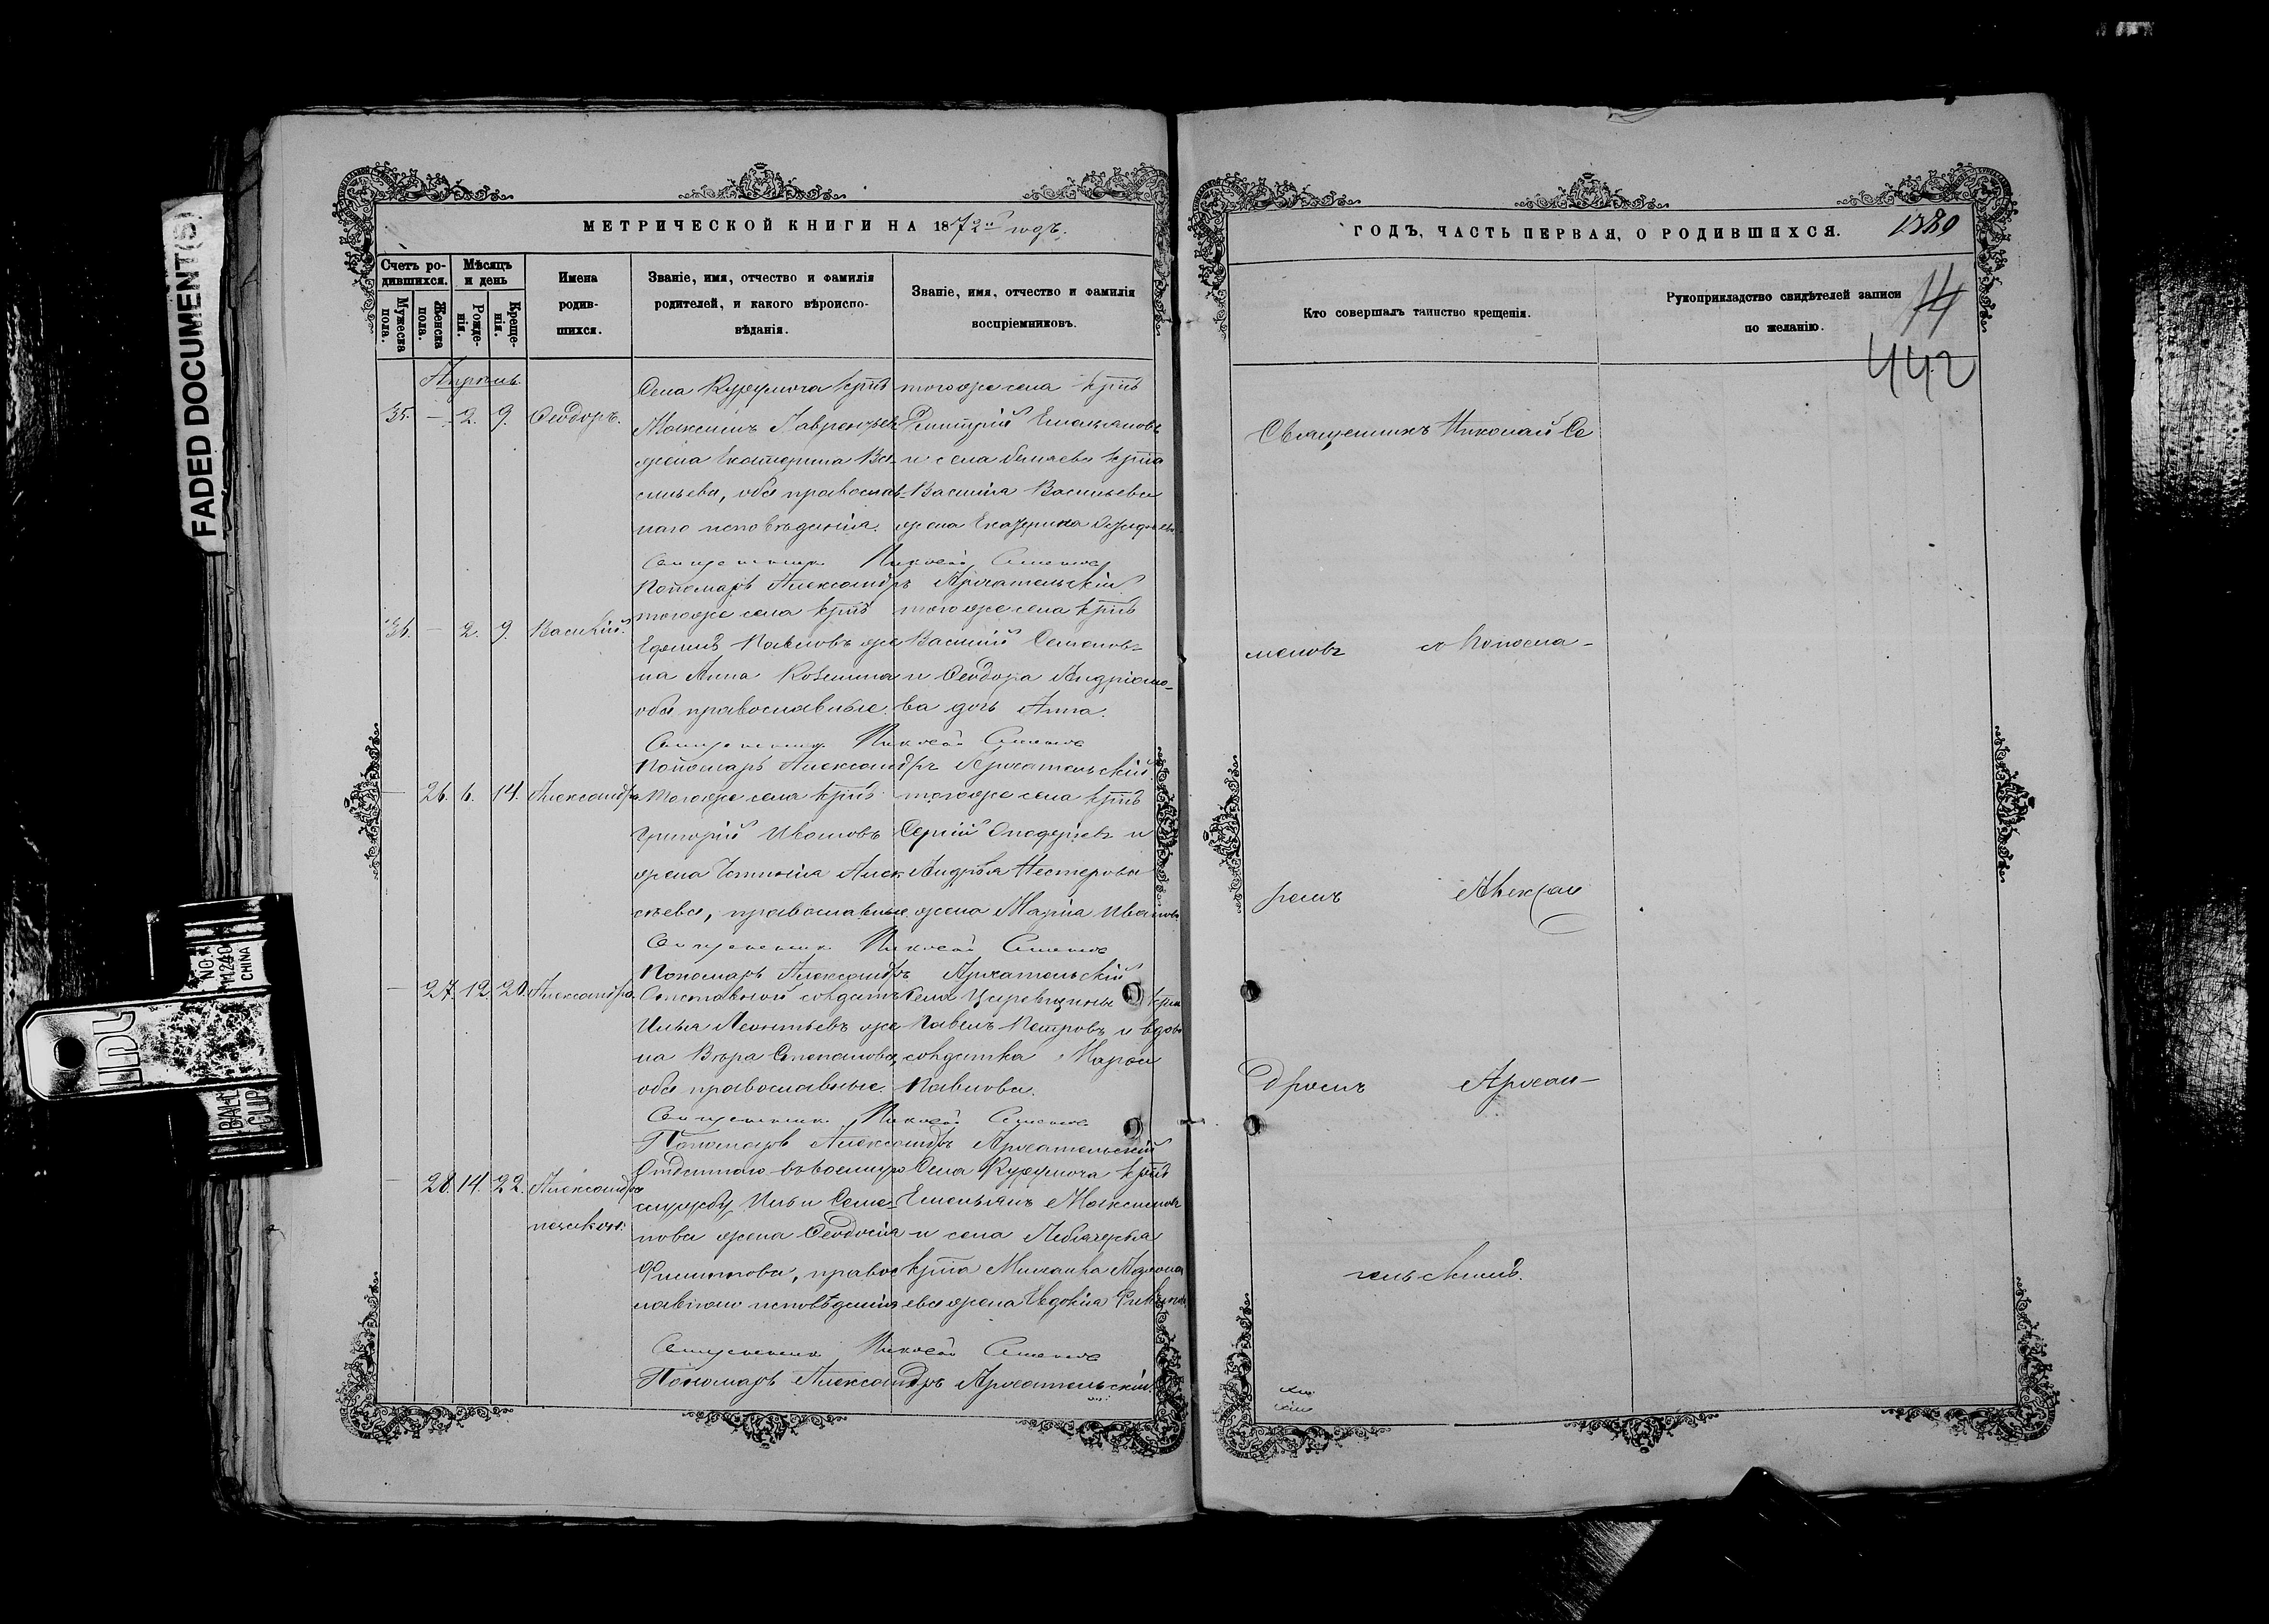 МЕТРИЧЕСКОЙ КНИГИ НА 1872й годъ.
Счетъ ро-
дившихся.
Мужеска
пола.
Женска
пола.
Мѣсяцъ
и день
Рожде-
нія.
Креще-
нія.
Имена
родив-
шихся.
Званіе, имя, отчество и фамилія
родителей, и какого вѣроиспо-
вѣданія.
Званіе, имя, отчество и фамилія
воспріемниковъ.
Апрѣль
35. — 2. 9. Ѳеодоръ.
Села крнъ
Максимъ Лаврентьевъ
жена Екатерина Ва-
сильева, оба православ-
наго исповѣданія.
тогоже села крнъ
Димитрій Емельяновъ
и села крна
Василія Васильева
жена Екатерина
Священникъ Николай Семеновъ
Пономарь Александръ Архангельскій
36. — 2. 9. Василій.
тогоже села крнъ
Ефимъ Павловъ же
на Анна Козьмина
оба православные.
тогоже села крнъ
Василій Семеновъ
и Ѳеодора Андріано-
ва дочь Анна.
Священникъ Николай Семеновъ
Пономарь Александръ Архангельскій.
— 26. 6. 14. Александра
Тогоже села крнъ
Григорій Ивановъ
жена Алек
сѣева, православные
тогоже села крнъ
Сергій и
Андрея Нестерова
жена Марія Иванова
Священникъ Николай Семеновъ
Пономарь Александръ Архангельскій
— 27. 12. 20. Александра.
Отставной солдатъ
Илья Леонтьевъ же
на Вѣра Степанова,
оба православные.
Села Царевщины крнъ
Павелъ Петровъ и вдова
солдатка Марѳа
Павлова.
Священникъ Николай Семеновъ
Пономарь Александръ Архангельскій
— 28. 14. 22. Александра
незакон:
Отданнаго въ военную
службу Ильи Семе-
нова жена Ѳеодосія
Филиппова, правос
лавнаго исповѣданія
Села крнъ
Емельянъ Максимовъ
и села
крна Михаила
ева жена Евдокія
Священникъ Николай Семеновъ
Пономарь Александръ Архангельскій.
ГОДЪ, ЧАСТЬ ПЕРВАЯ, О РОДИВШИХСЯ.
1389
74
442
Кто совершалъ таинство крещенія.
Рукоприкладство свидѣтелей записи
по желанію.
Священникъ Николай Се
меновъ съ Понома-
ремъ Алексан
дромъ Архан-
гельскимъ.
FADED DOCUMENT(S)
NO.
11240
CHINA
CLIP